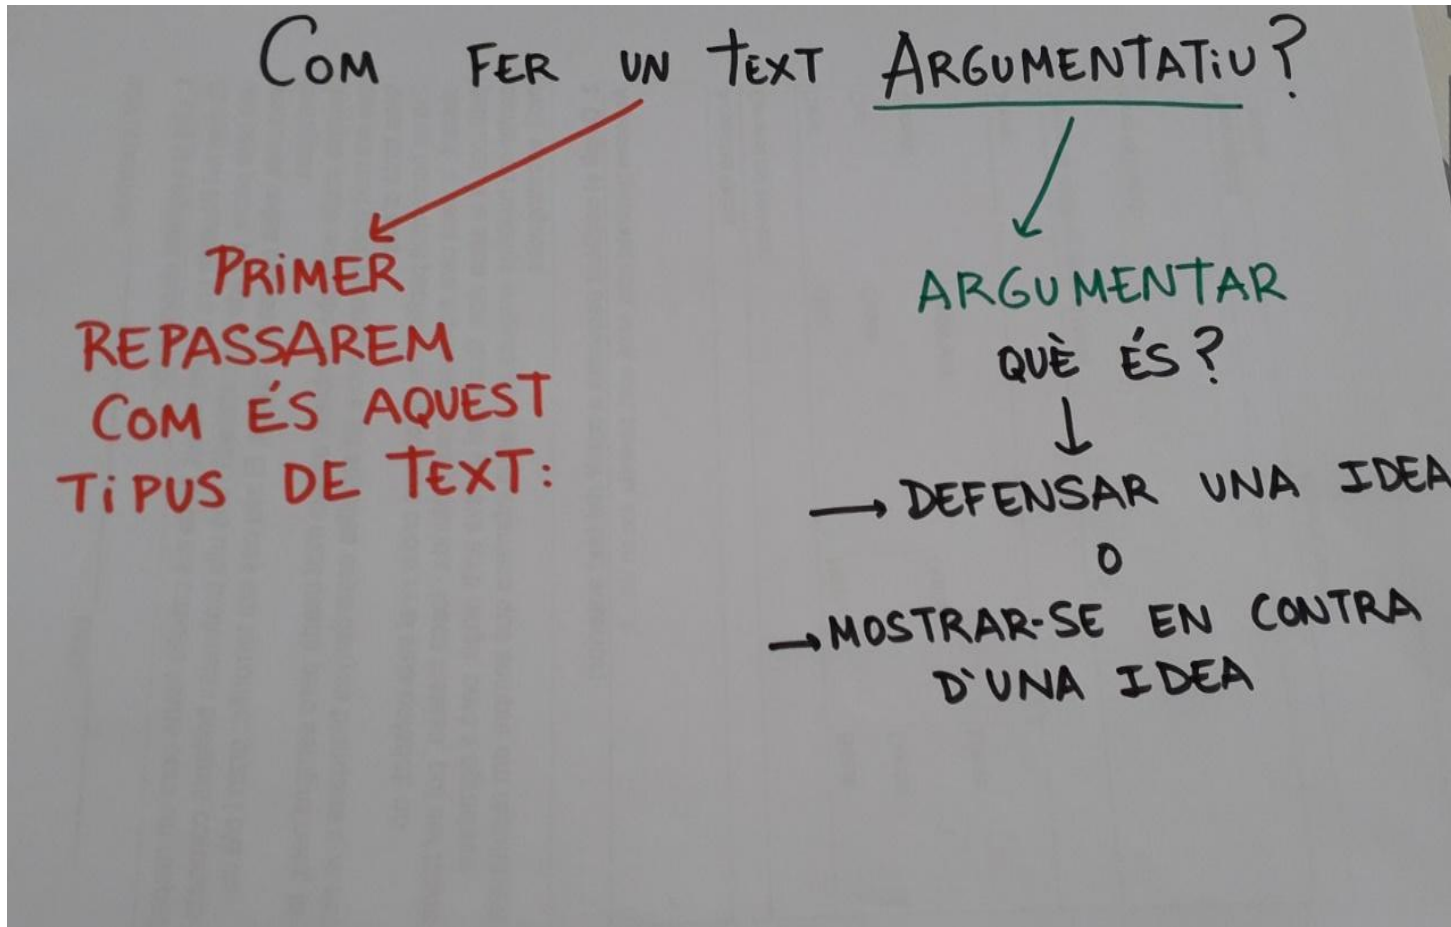 COM FER UN TEXT ARGUMENTATIU?
PRIMER
REPASSAREM
COM ÉS AQUEST
TIPUS DE TEXT:
ARGUMENTAR
QUÈ ÉS?
→ DEFENSAR UNA IDEA
O
→ MOSTRAR-SE EN CONTRA
D'UNA IDEA